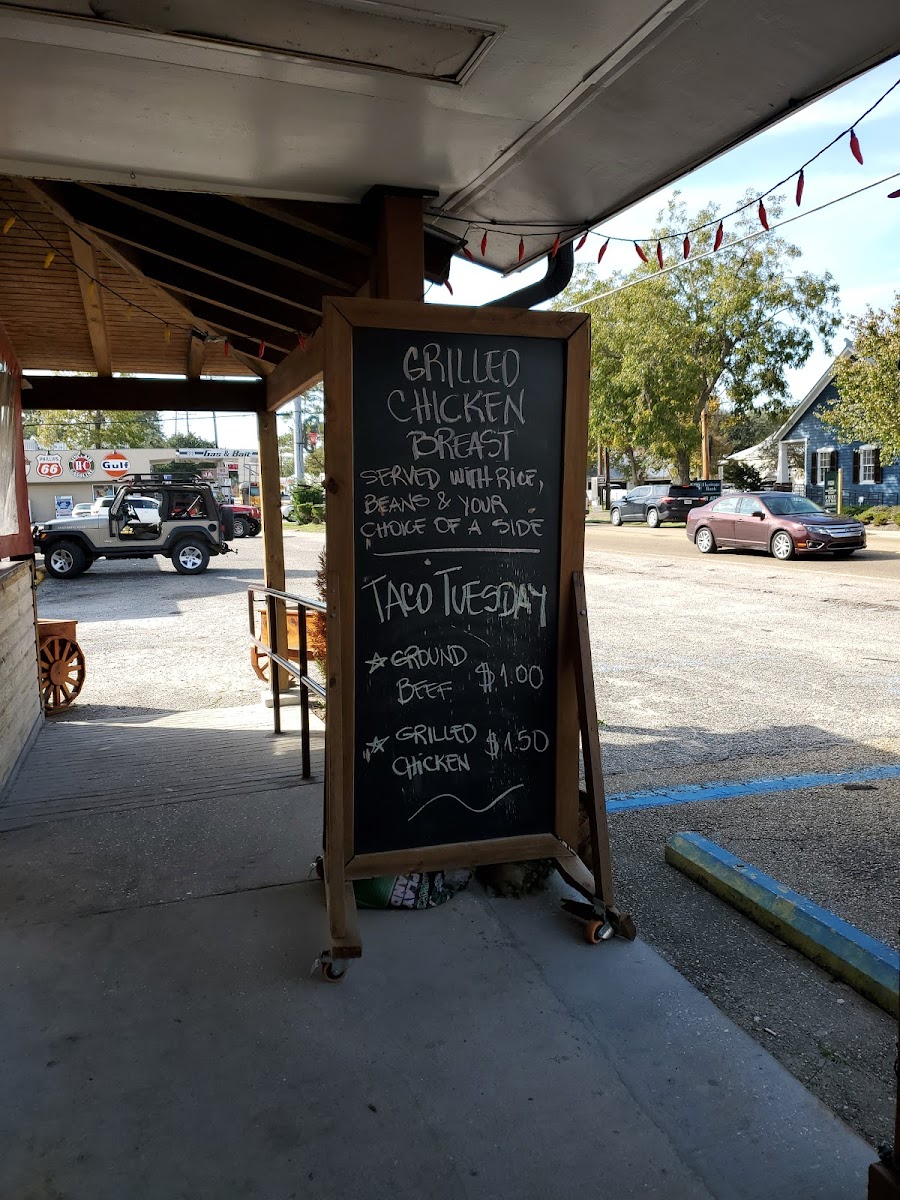 GRILLED
CHICKEN
BREAST
SERVED WITH RICE,
BEANS & YOUR
CHOICE OF A SIDE
TACO TUESDAY
☆ GROUND
BEEF $1.00
☆ GRILLED
CHICKEN $1.50
PHILLIPS
66
Gulf
Gas & Bait